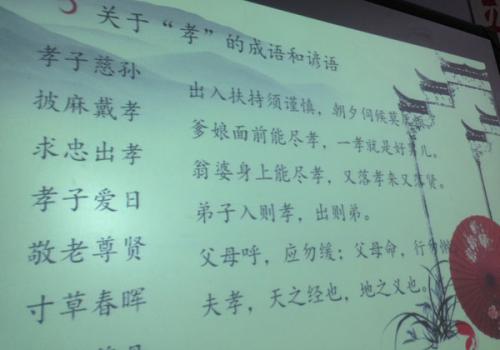 关于“孝”的成语和谚语
孝子慈孙
披麻戴孝
求忠出孝
孝子爱日
敬老尊贤
寸草春晖
出入扶持须谨慎，朝夕伺候莫
爹娘面前能尽孝，一孝就是好儿。
翁婆身上能尽孝，又落孝来又落贤。
弟子入则孝，出则弟。
父母呼，应勿缓；父母命，行勿
夫孝，天之经也，地之义也。